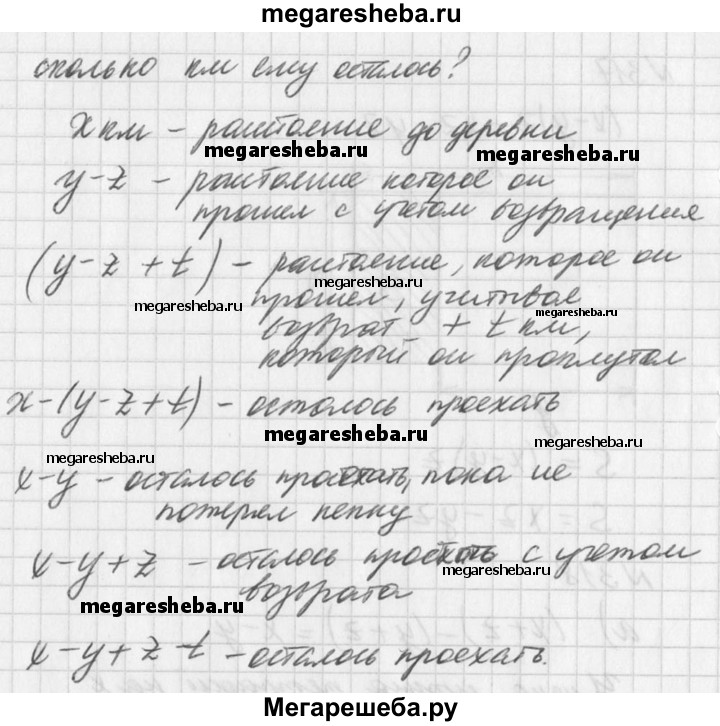 megaresheba.ru
сколько км ему осталось?
x км – расстояние до деревни
megaresheba.ru megaresheba.ru
y-z – расстояние которое он
прошел с учетом возвращения
(y-z+t) – расстояние, которое он
megaresheba.ru прошел, учитывая
megaresheba.ru
возврат + t км,
который он проплутал
x-(y-z+t) – осталось проехать
megaresheba.ru
megaresheba.ru
x-y – осталось проехать, пока не
потерял кепку
x-y+z – осталось проехать с учетом
megaresheba.ru
возврата
megaresheba.ru
x-y+z-t – осталось проехать.
Мегарешеба.ру